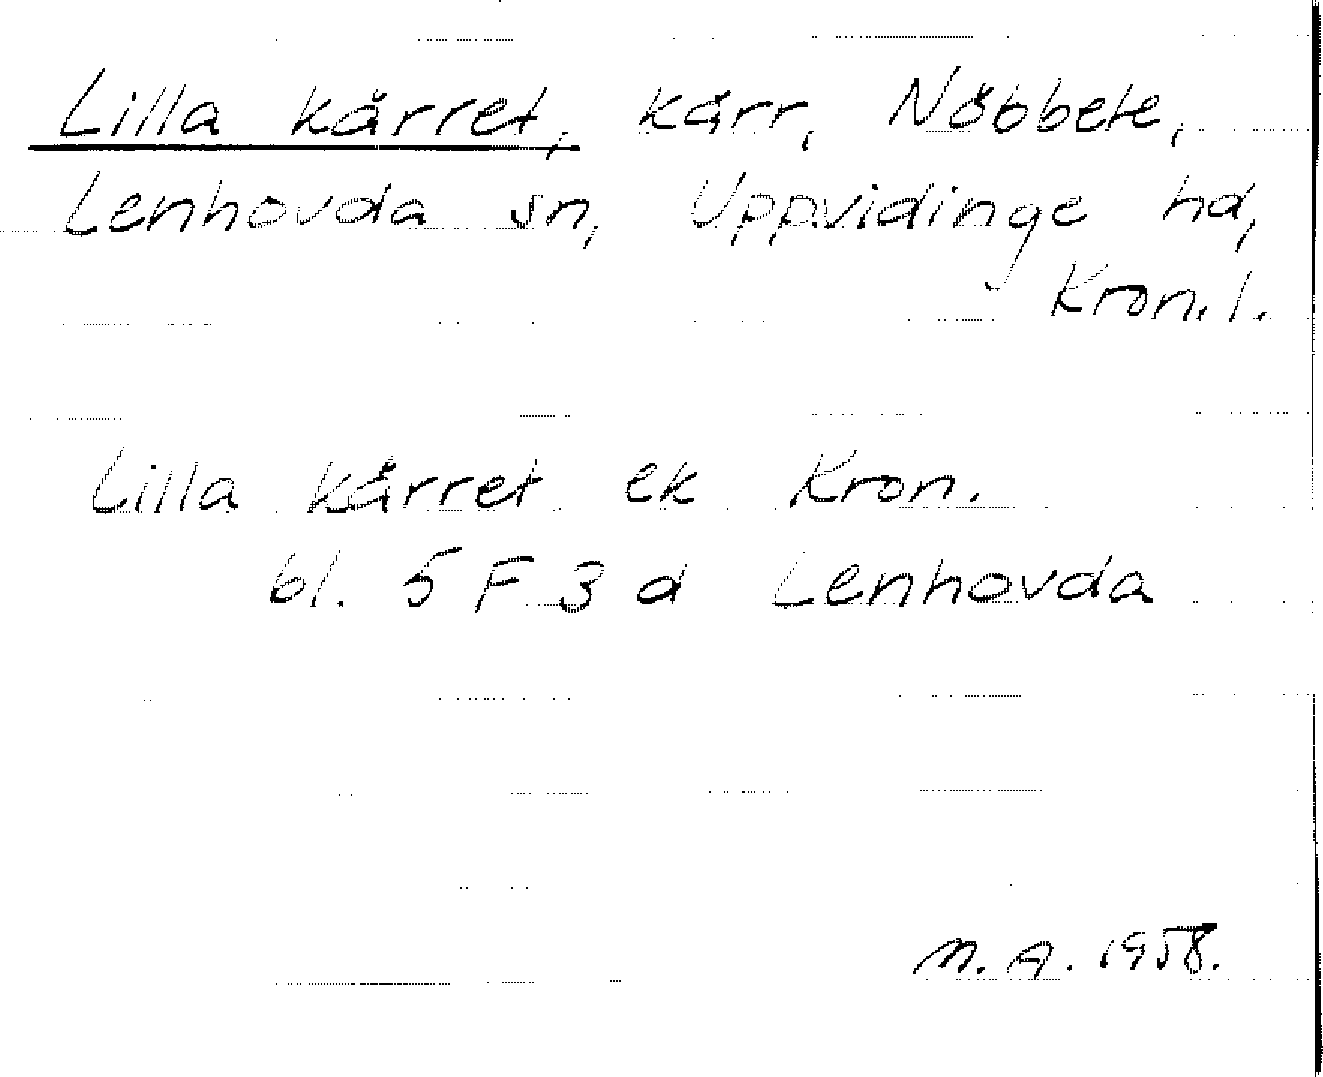 Lilla kärret, kärr, Nöbbele,
Lenhovda sn, Uppvidinge hd,
Kron. l.
Lilla kärret ek Kron.
bl. 5 F 3 d Lenhovda
M. A. 1958.